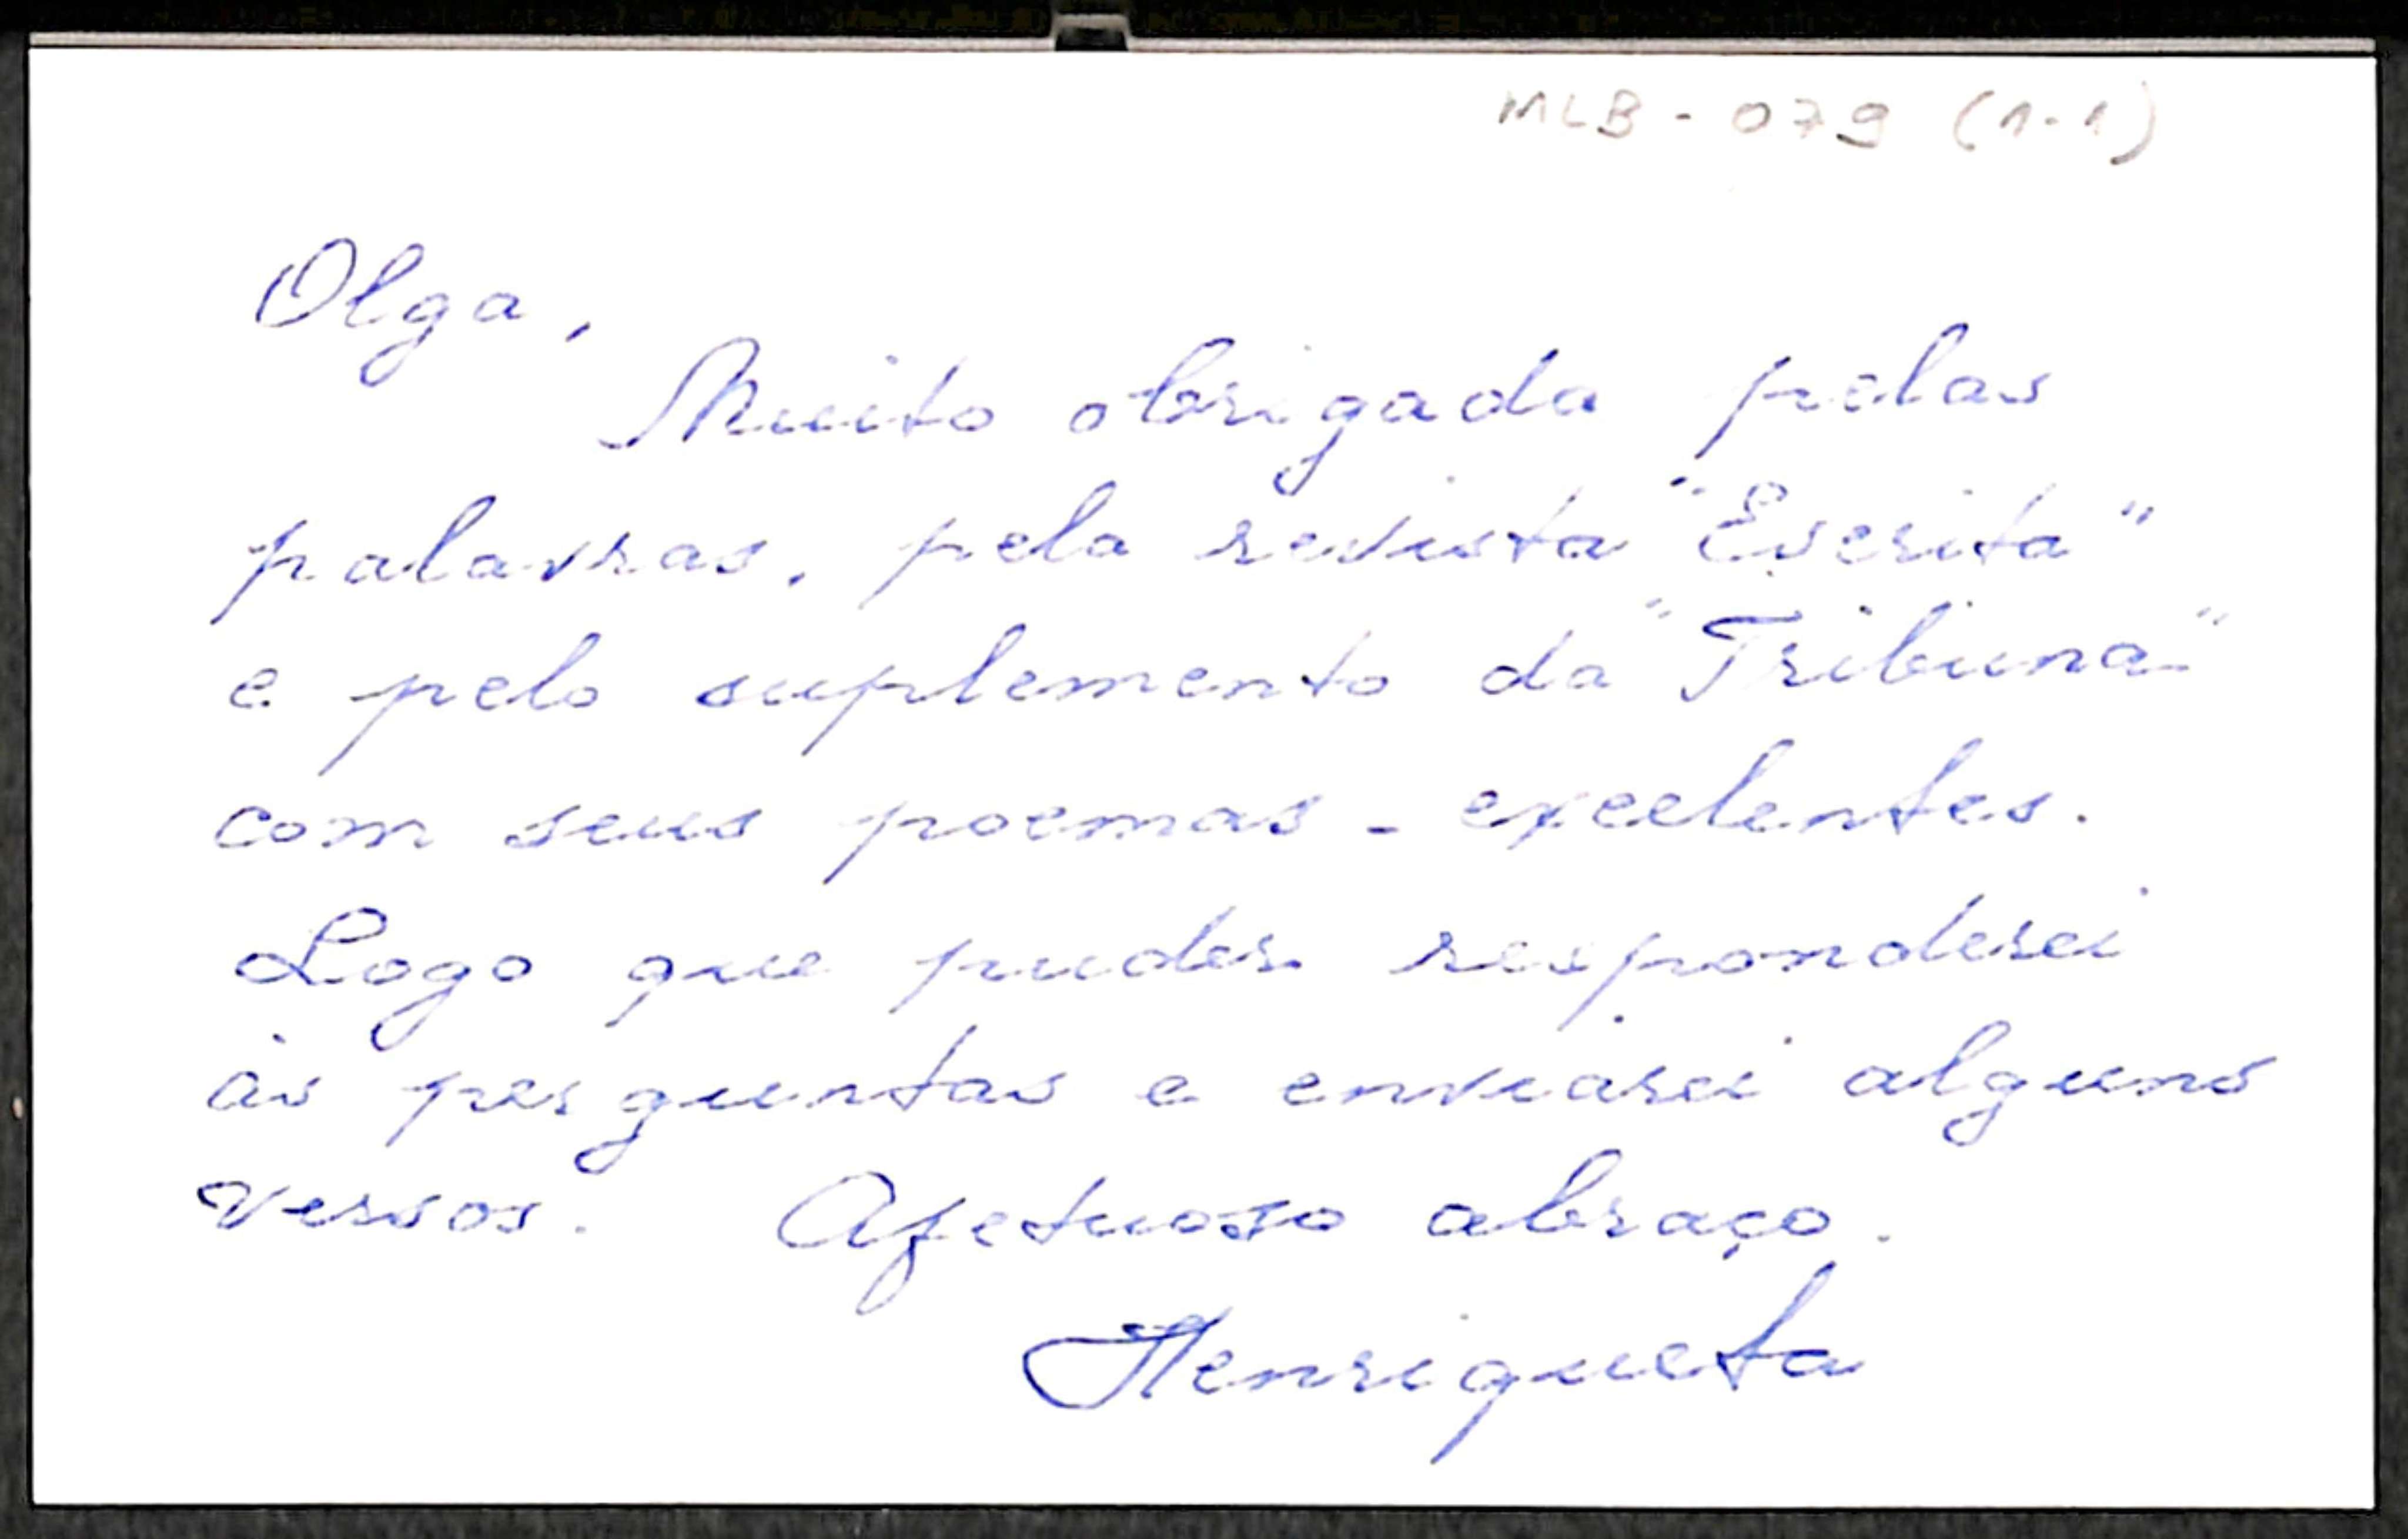 MLB - 079 (1-1)
Olga,
Muito obrigada pelas
palavras, pela revista "Escrita"
e pelo suplemento da "Tribuna"
com seus poemas - excelentes.
Logo que puder responderei
às perguntas e enviarei alguns
versos. Afetuoso abraço.
Henriqueta